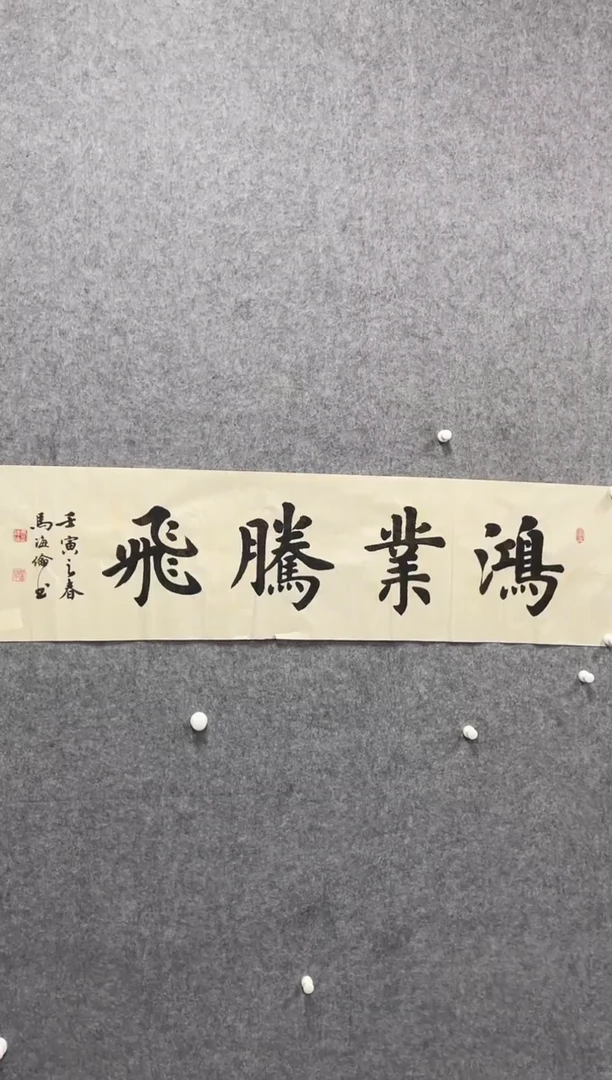 鴻業騰飛
壬寅之春
馬海倫书